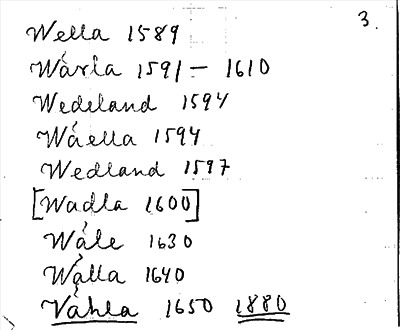 3.
Wella 1589
Wårla 1591 – 1610
Wedeland 1594
Wåella 1594
Wedland 1597
[Wadla 1600]
Wåle 1630
Wålla 1640
Våhla 1650 1880